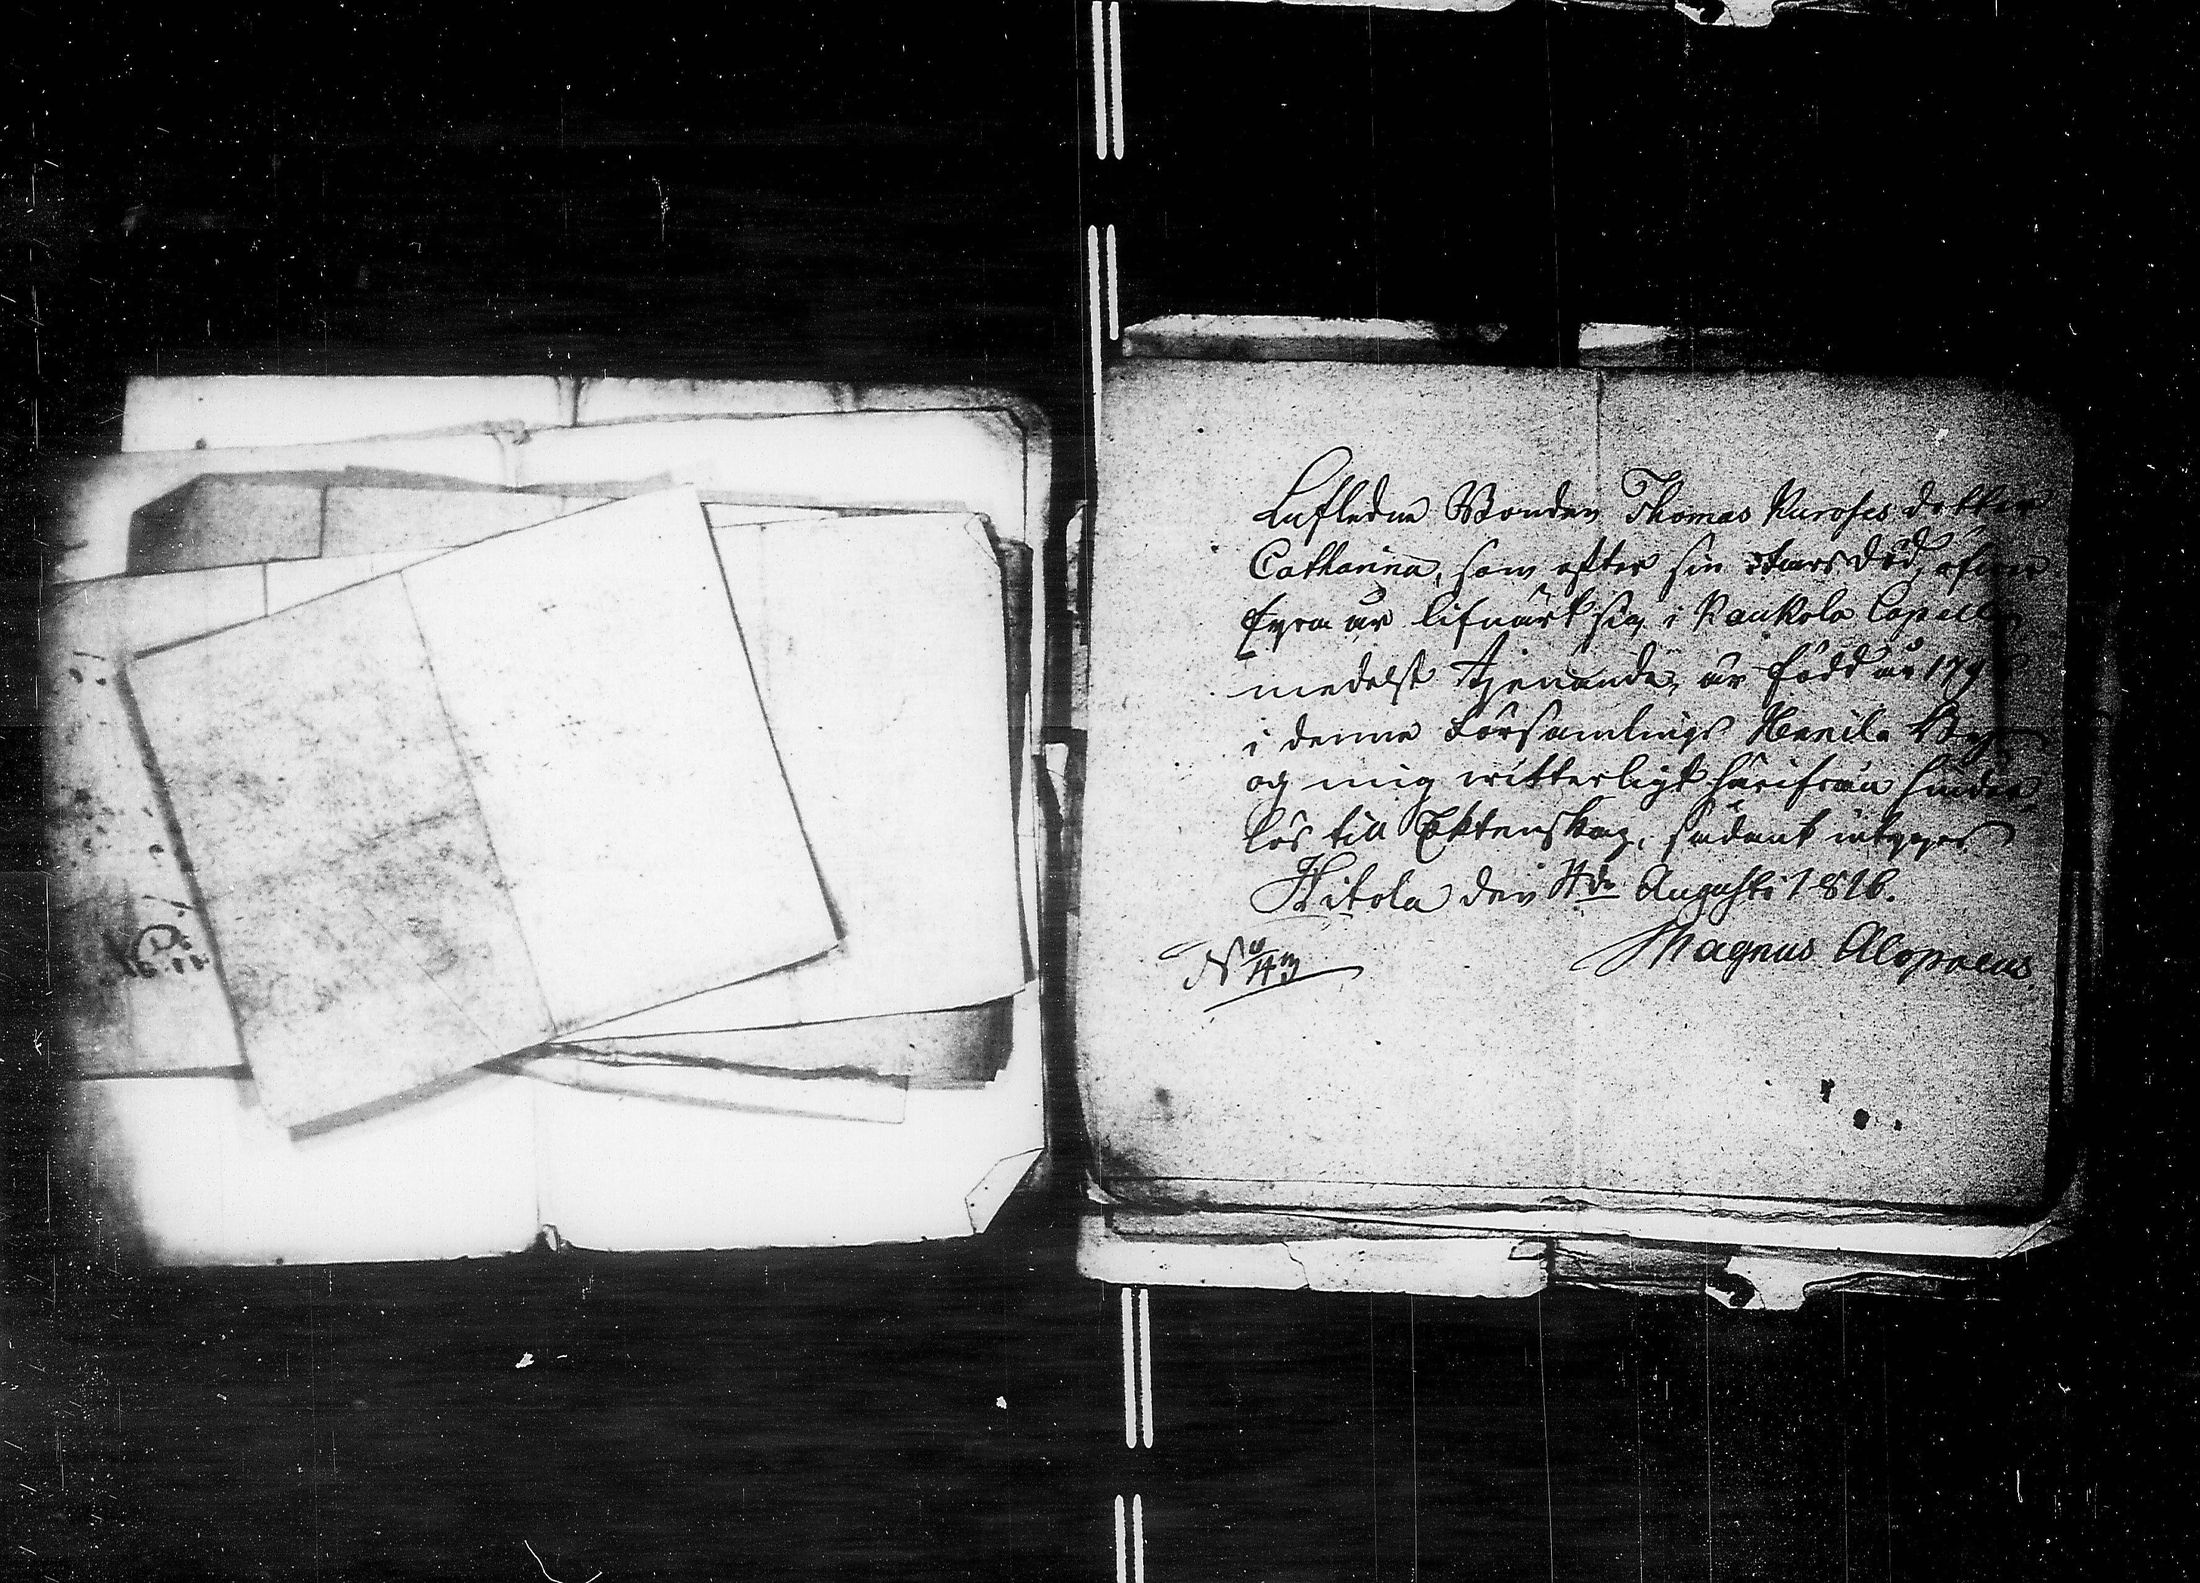 Afledne Bonden Thomas Kuroses dotter
Catharina, som efter sin Fars död, öfver
fyra år lifnärt sig i Kaukola Capell
medelst tjenande, är född år 179
i denne Församlings Hännilä By
og mig witterligt härifrån hinder
lös till Ektenskap, sådant intyges
Hitola den 4de Augusti 1816.
Magnus Alopaeus
No 43